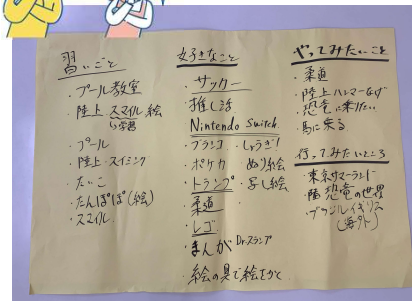 習いごと
・プール教室
・陸上 スマイル 絵
学習
・プール
・陸上・スイミング
・たいこ
・たんぽぽ(絵)
・スマイル
好きなこと
・サッカー
・推し活
Nintendo Switch
・ブランコ ・しょうぎ!
・ポケカ ・ぬり絵
・トランプ ・写し絵
・柔道
・レゴ
・まんが Dr.スランプ
・絵の具で絵をかく
やってみたいこと
・柔道
・陸上ハンマーなげ
・恐竜に乗りたい
・馬に乗る
行ってみたいところ
・東京サマーランド
・恐竜の世界
・ブラジル イギリス
(海外)